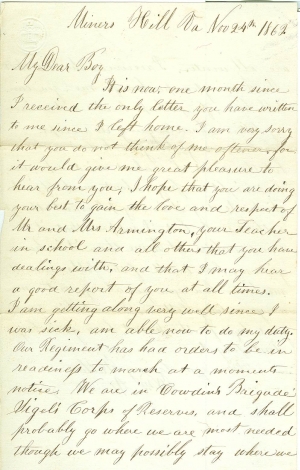 Miners Hill Va Nov 24th 1862
My Dear Boy
It is now one month since
I received the only letter you have written
to me since I left home. I am very sorry
that you do not think of me oftener, for
it would give me great pleasure to
hear from you, I hope that you are doing
your best to gain the love and respect of
Mr and Mrs Armington, your teacher
in school and all others that you have
dealings with, and that I may hear
a good report of you at all times.
I am getting along very well since I
was sick, am able now to do my duty.
Our Regiment has had orders to be in
readiness to march at a moments
notice. We are in Cowdins Brigade
Sigels Corps of Reserves, and shall
probably go where we are most needed
though we may possibly stay where we